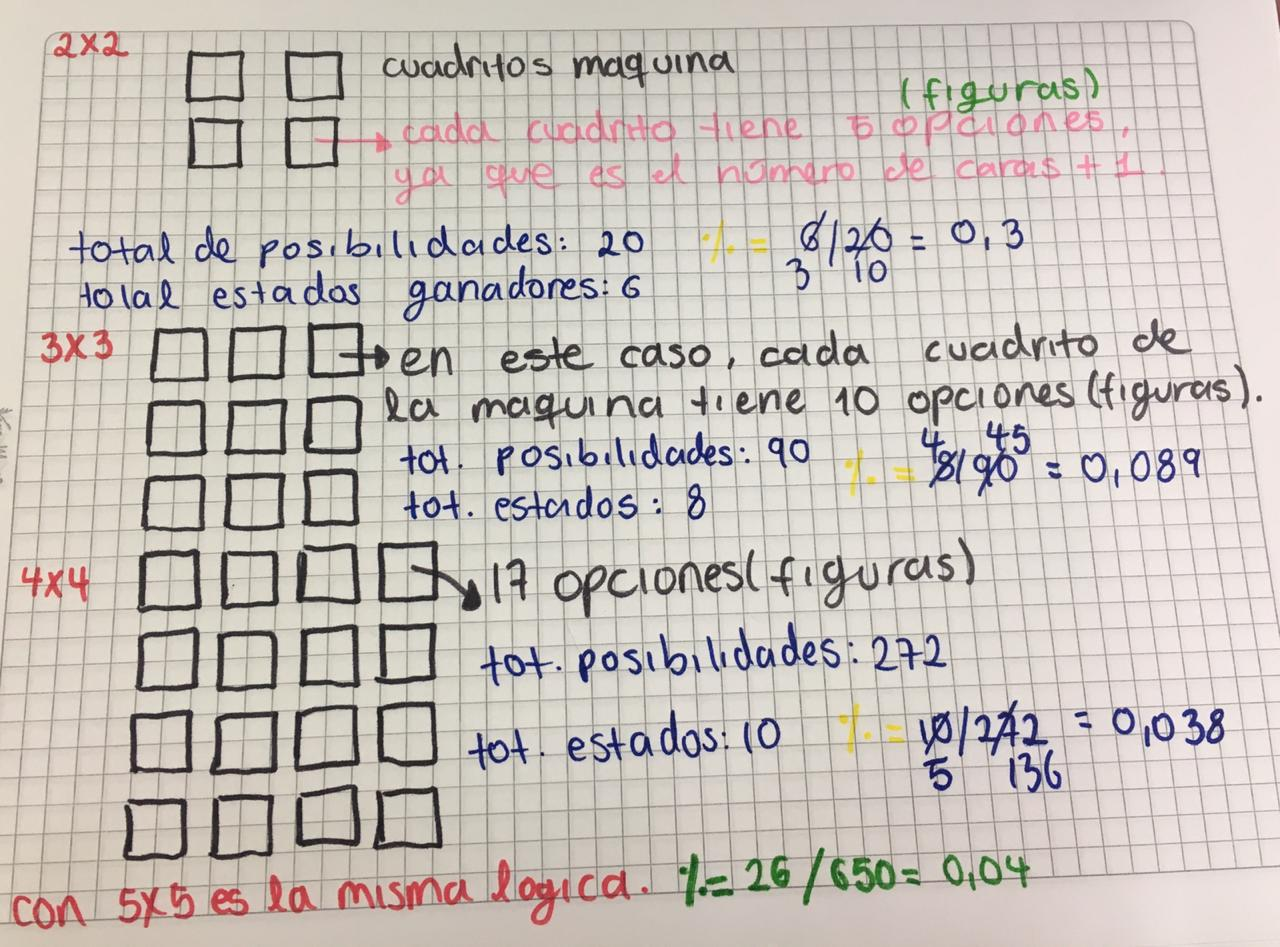 2x2
cuadritos maquina
(figuras)
cada cuadrito tiene 5 opciones,
ya que es el número de caras + 1.
total de posibilidades: 20 %= 6/20 = 0,3
3 10
tolal estados ganadores: 6
3x3
en este caso, cada cuadrito de
la maquina tiene 10 opciones (figuras).
4 45
tot. posibilidades: 90 %= 8/90 = 0,089
tot. estados: 8
4x4
17 opciones (figuras)
tot. posibilidades: 272
tot. estados: 10 %= 10/272 = 0,038
5 136
con 5x5 es la misma logica. %= 26/650 = 0,04